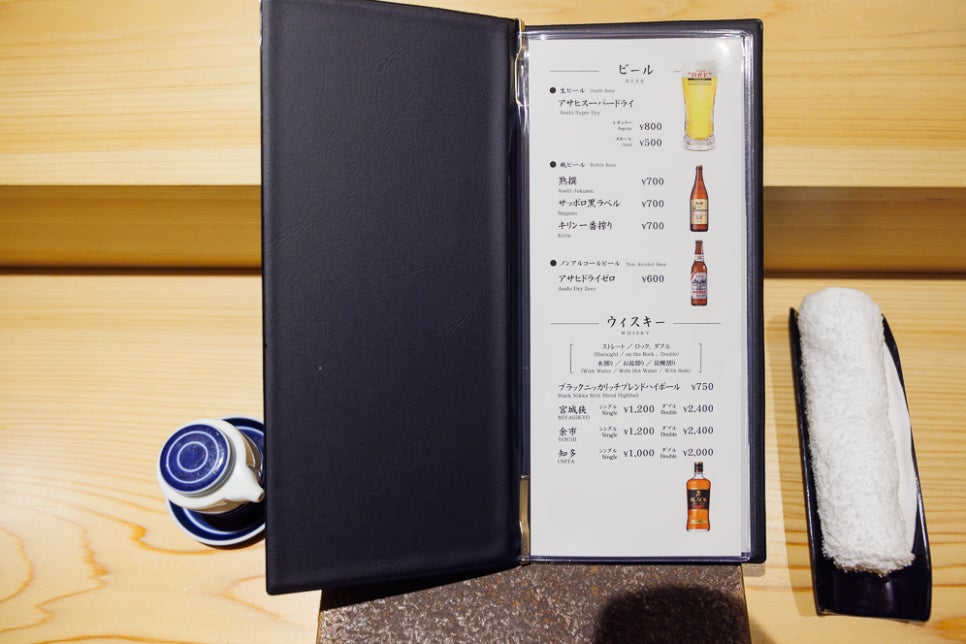 ビール
BEER
● 生ビール Draft Beer
アサヒスーパードライ
Asahi Super Dry
レギュラー
Regular ¥800
スモール
Small ¥500
● 瓶ビール Bottle Beer
熟撰 ¥700
Asahi Jukusen
サッポロ黒ラベル ¥700
Sapporo
キリン一番搾り ¥700
Kirin
● ノンアルコールビール Non Alcohol Beer
アサヒドライゼロ ¥600
Asahi Dry Zero
ウィスキー
WHISKY
ストレート / ロック、ダブル
(Starnight / on the Rock 、 Double)
水割り / お湯割り / 炭酸割り
(With Water / With Hot Water / With Soda)
ブラックニッカリッチブレンドハイボール ¥750
Black Nikka Rich Blend Highball
宮城峡 シングル Single ¥1,200 ダブル Double ¥2,400
MIYAGIKYO
余市 シングル Single ¥1,200 ダブル Double ¥2,400
YOICHI
知多 シングル Single ¥1,000 ダブル Double ¥2,000
CHITA
"DRY"
Asahi
BLACK